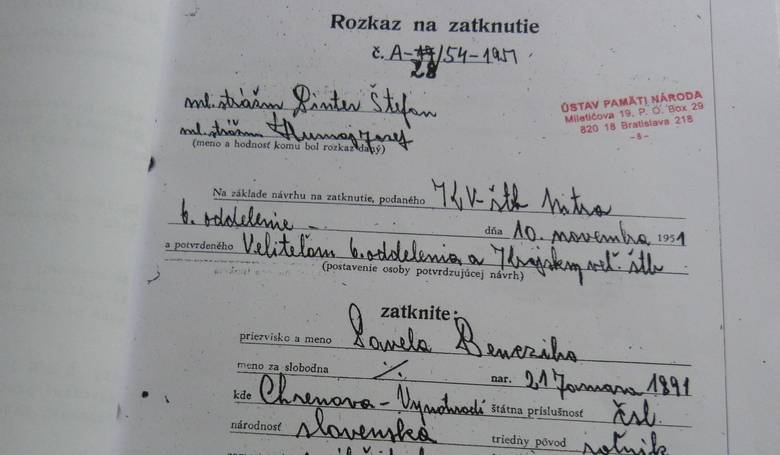 Rozkaz na zatknutie
č. A-/54-1951
28
ml. strážm Pinter Štefan
ml. strážm Jozef
(meno a hodnosť komu bol rozkaz daný)
ÚSTAV PAMÄTI NÁRODA
Miletičova 19, P. O. Box 29
820 18 Bratislava 218
- 8 -
Na základe návrhu na zatknutie, podaného KV-štb Nitra
6. oddelenie - dňa 10. novembra 1951
a potvrdeného Veliteľom 6. oddelenia a Krajským veľ. štb
(postavenie osoby potvrdzujúcej návrh)
zatknite:
priezvisko a meno Pavela
meno za slobodna /. nar. 21 Januara 1891
kde Chrenova - štátna príslušnosť čsl.
národnosť slovenská triedny pôvod roľník